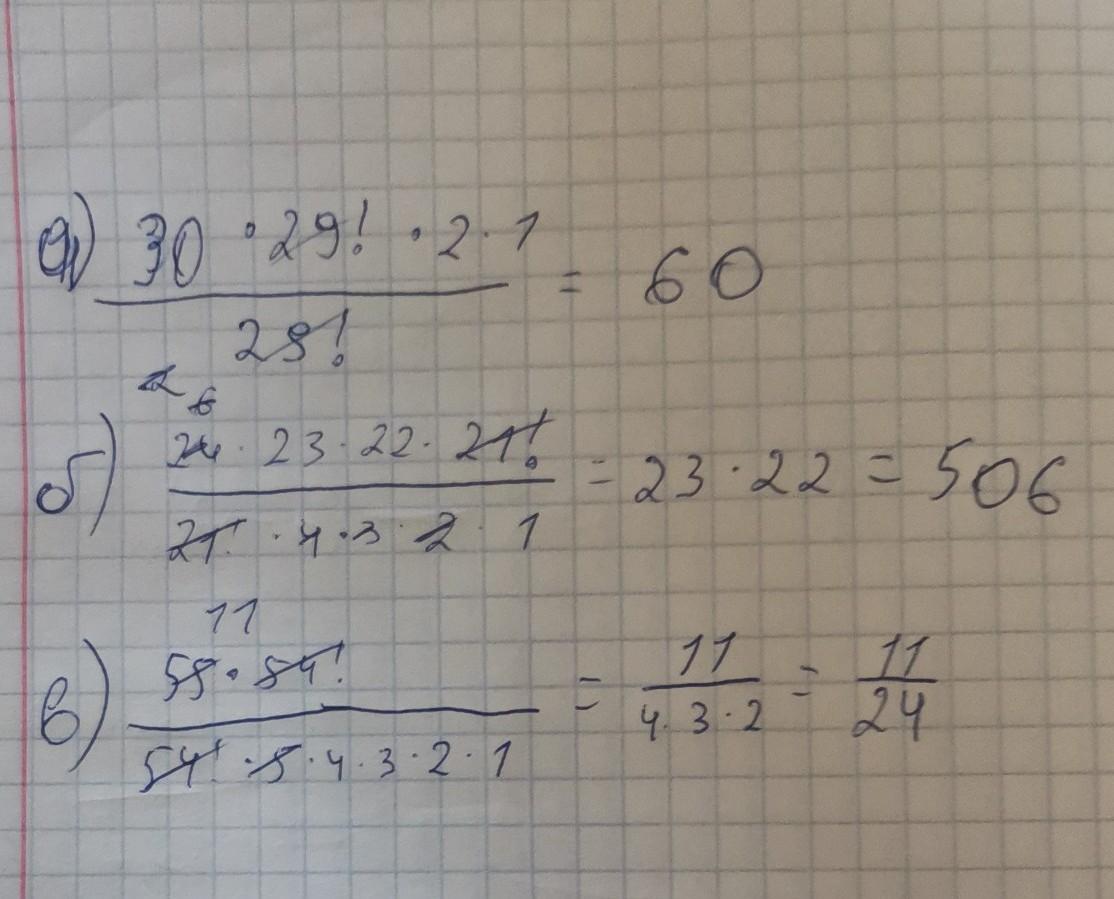 а) 30 · 29! · 2 · 1 / 29! = 60
б) 24 · 23 · 22 · 21! / 21! · 4 · 3 · 2 · 1 = 23 · 22 = 506
6
11
в) 55 · 54! / 54! · 5 · 4 · 3 · 2 · 1 = 11 / 4 · 3 · 2 = 11 / 24